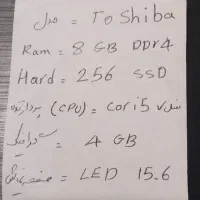 مدل = ToShiba
Ram = 8 GB DDr4
Hard = 256 SSD
پردازنده (CPU) = Cori5 نسل 7
گرافیک = 4 GB
صفحه نمایش = LED 15.6